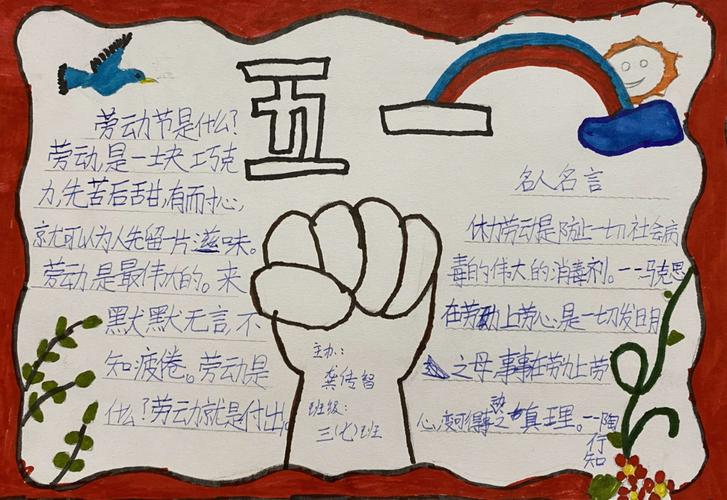 五一
劳动节是什么?
劳动,是一块巧克
力,先苦后甜,有耐心,
就可以为人先留一片滋味。
劳动,是最伟大的。来
默默无言,不
知疲倦。劳动是
什么?劳动就是付出。
主办:
龚传智
班级:
三(七)班
名人名言
体力劳动是防止一切社会病
毒的伟大的消毒剂。--马克思
在劳动上劳心,是一切发明
之母,事事在劳力上劳
心,变可得事之真理。--陶
行
知